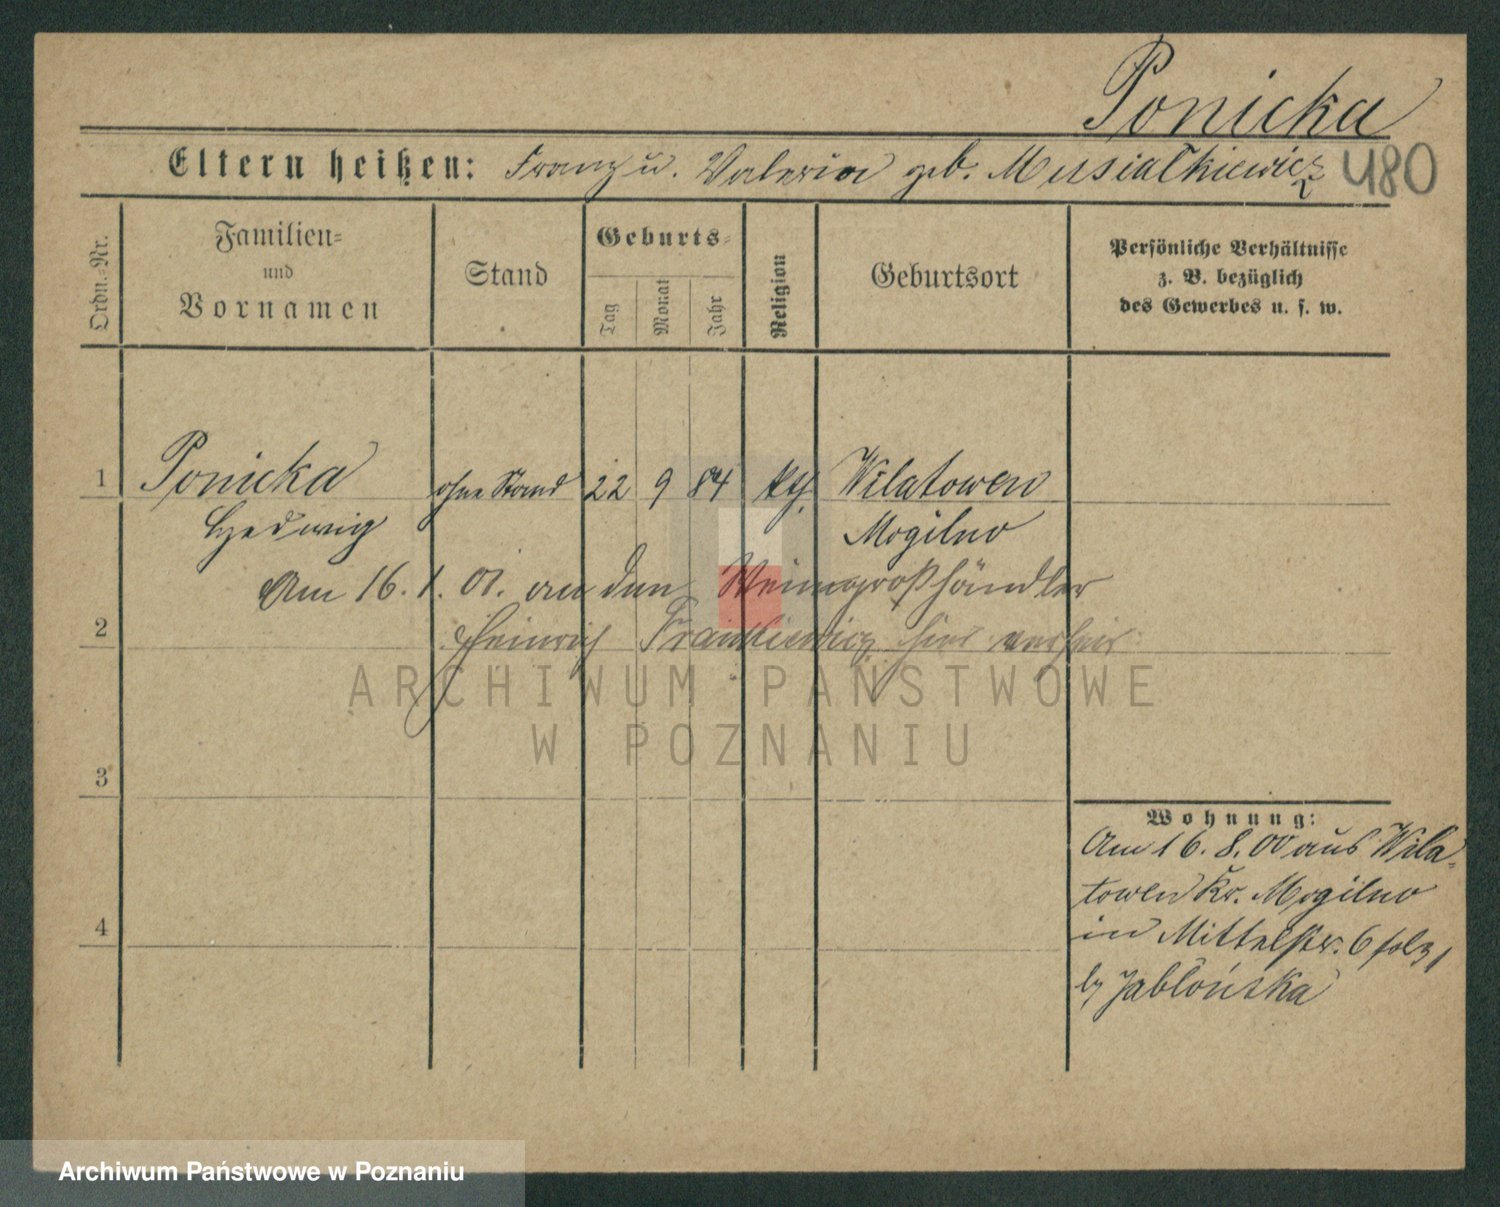 Ponicka
Eltern heißen: Franz u. Valeria geb. Musiałkiewicz 480
Ordn.-Nr.
Familien-
und
Vornamen
Stand
Geburts-
Tag
Monat
Jahr
Religion
Geburtsort
Persönliche Verhältnisse
z. B. bezüglich
des Gewerbes u. s. w.
1 Ponicka ohne Stand 22 9 84 kth. Wilatowen
Hedwig Mogilno
Am 16. 1. 01. an den Weinngroßhändler
2 Heinrich Frankiewicz hier verheir.
ARCHIWUM PAŃSTWOWE
W POZNANIU
3
Wohnung:
Am 16. 8. 00 aus Wila-
towen Kr. Mogilno
4 in Mittelstr. 6
b/ Jabłońska
Archiwum Państwowe w Poznaniu